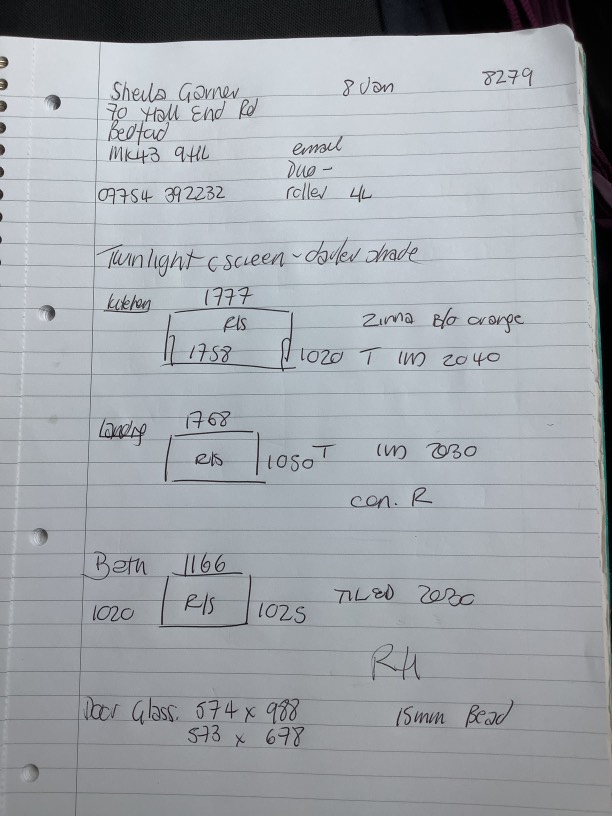 Sheila Garner 8 Jan 8279
70 Hall End Rd
Bedford
MK43 9HL email
Duo -
09754 392232 roller 4L
Twinlight c screen - darker shade
Kitchen 1777
R/S Zinna B/O orange
1758 1020 T IM 2040
Landing 1768
R/S 1050 T IM 2030
con. R
Bath 1166
1020 R/S 1025 TILED 2030
RH
Door Glass. 574 x 988 15mm Bead
573 x 678